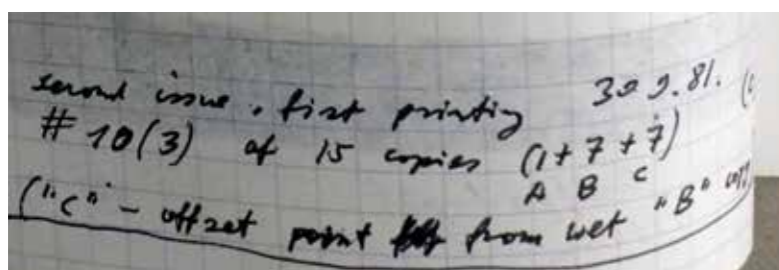 second issue, first printing 30 9. 81. (
# 10(3) of 15 copies (1 + 7 + 7)
A B C
("C" - offset point from wet "B"